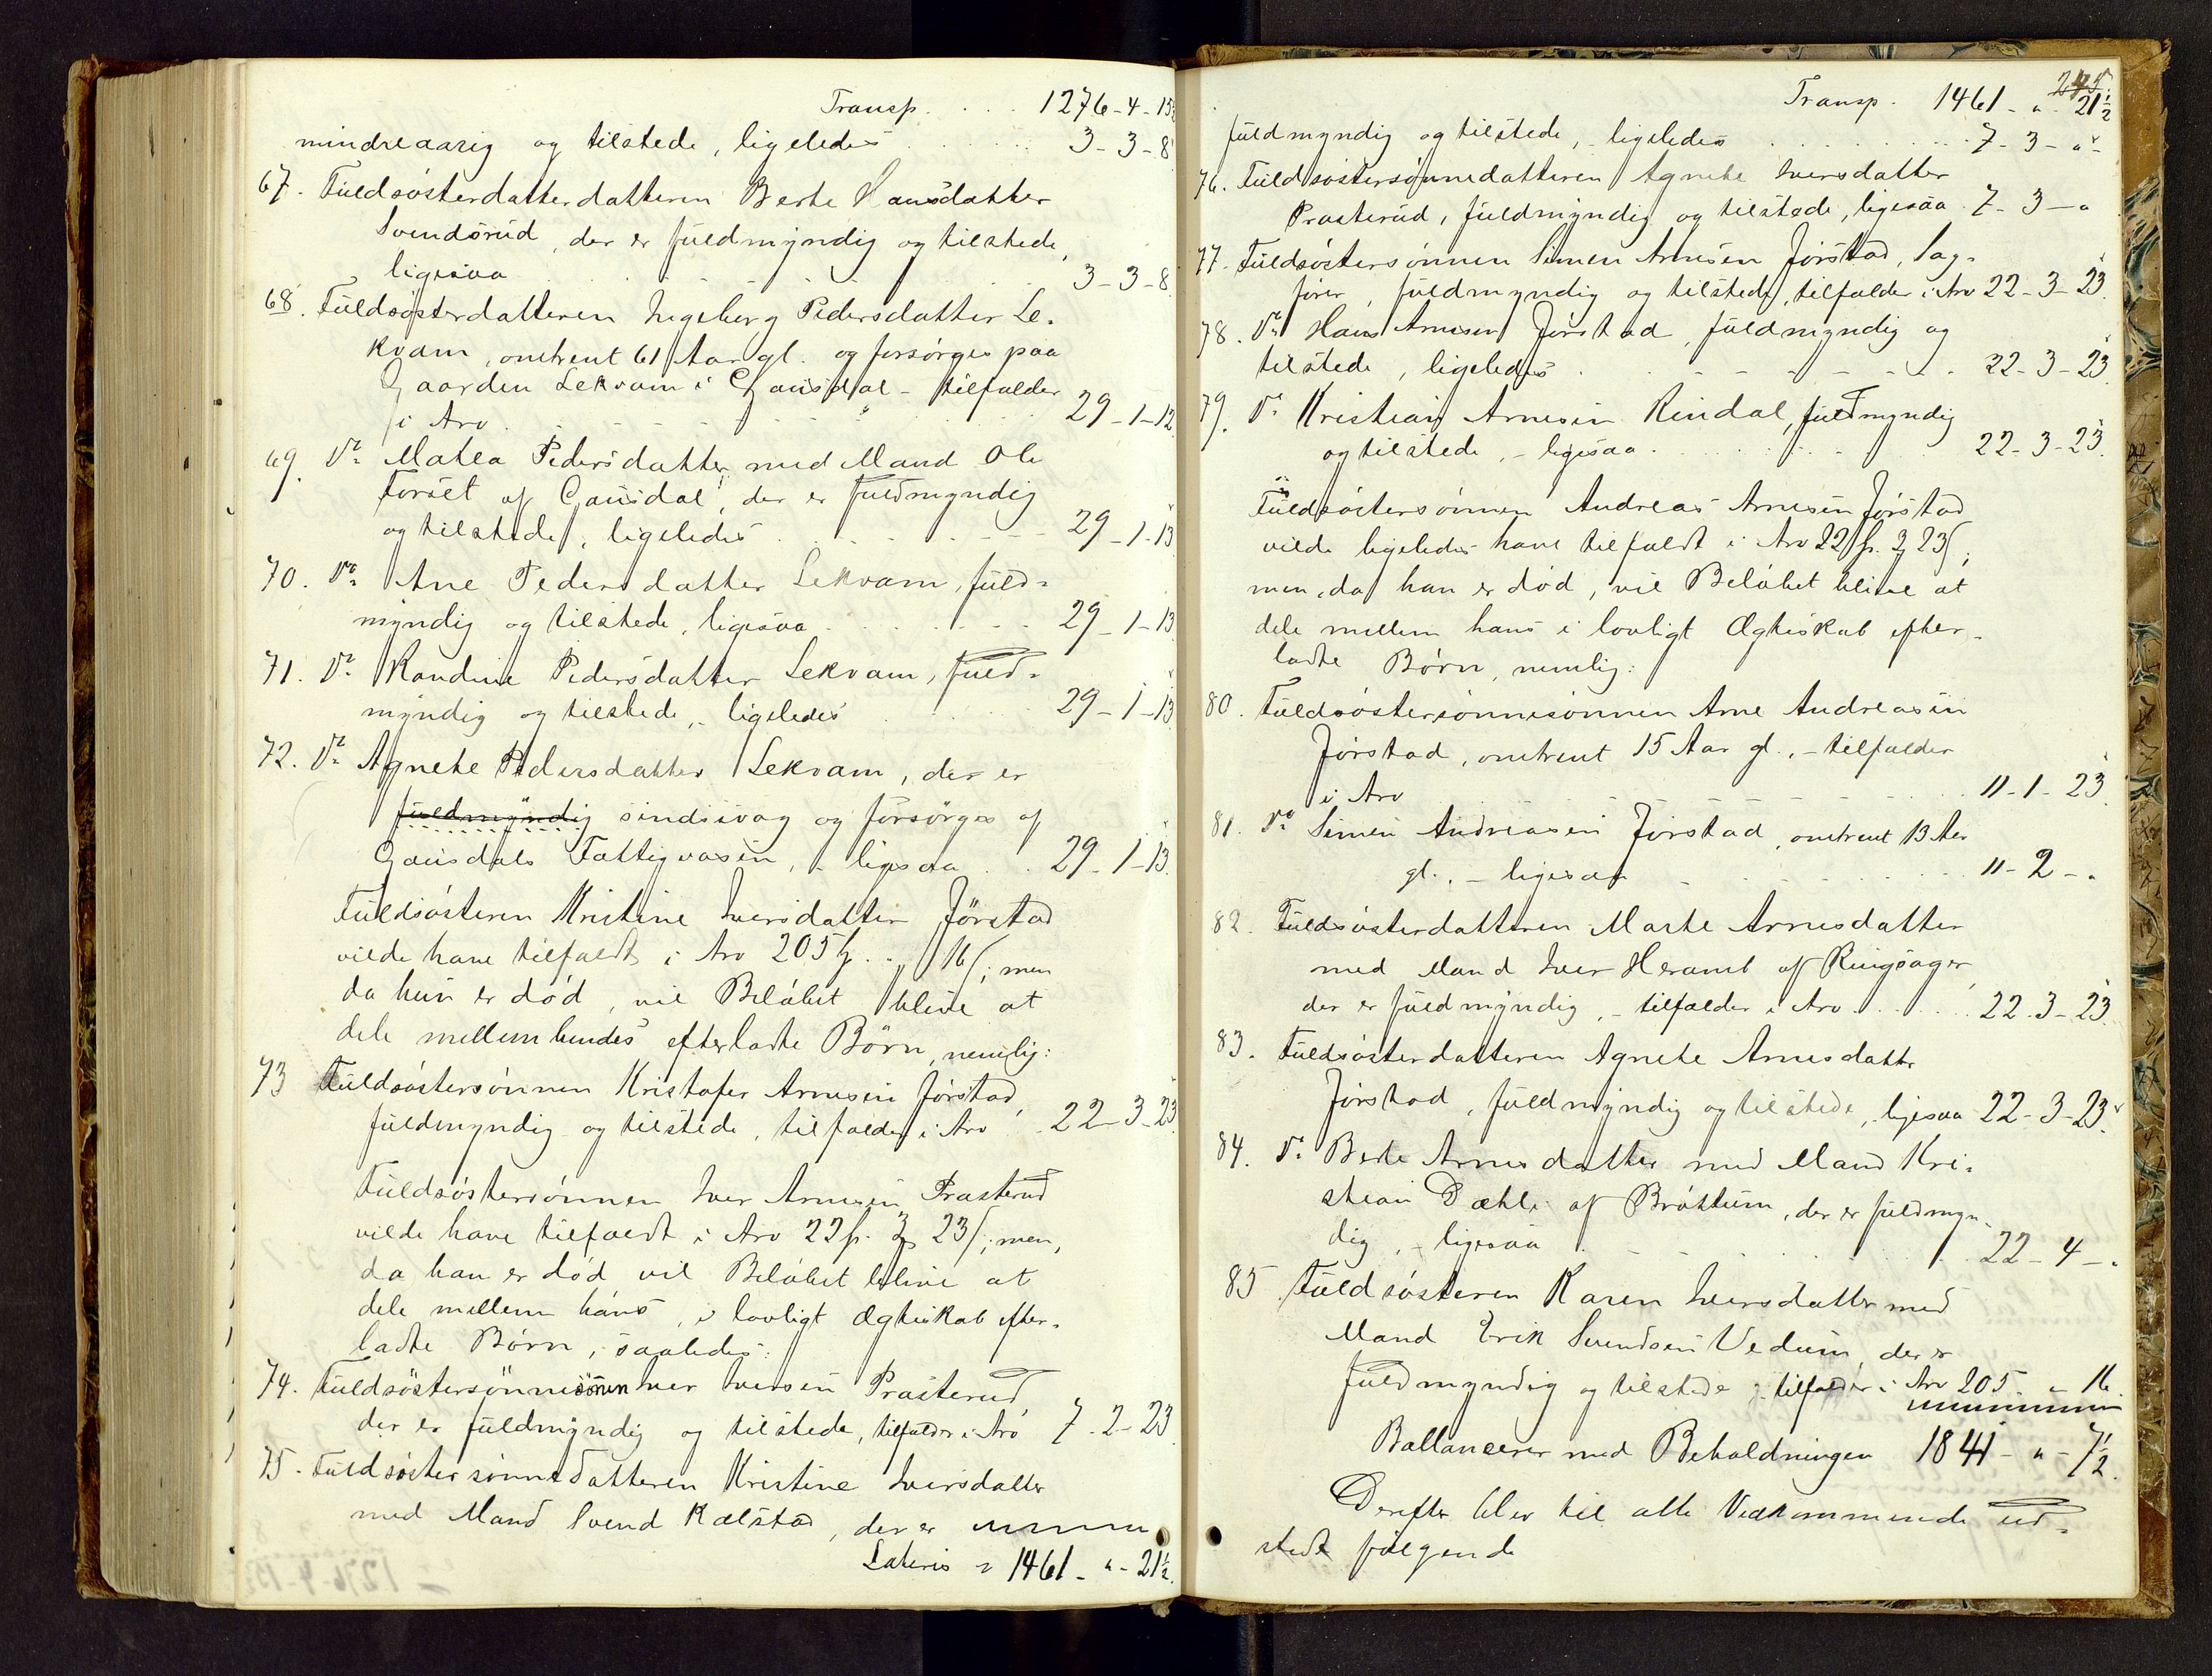 Transp. . . . 1276-4-15½
mindreaarig og tilstede, ligeledes . . . . . 3-3-8
67. Fuldsösterdatterdatteren Berte Hansdatter
Svendsrud, der er fuldmyndig og tilstede,
ligesaa . . . . . . . 3-3-8.
68. Fuldsösterdatteren Ingeborg Pedersdatter Le-
kvam, omtrent 61 Aar gl. og forsörges paa
Gaarden Lekvam i Gausdal - tilfalder
i Arv . . . . . . 29-1-12.
69. Do Matea Pedersdatter med Mand Ole
Forset af Gausdal, der er fuldmyndig
og tilstede, ligeledes . . . . . 29-1-13
70. Do Ane Pedersdatter Lekvam, fuld-
myndig og tilstede, ligesaa . . . . . 29-1-13
71. Do Randine Pedersdatter Lekvam, fuld-
myndig og tilstede, - ligeledes . . . . 29-1-13
72. Do Agnete Pedersdatter Lekvam, der er
fuldmyndig sindssvag og forsörges af
Gausdals Fattigvæsen, - ligesaa . . 29-1-13.
Fuldsösteren Kristine Iversdatter Jörstad
vilde have tilfaldt i Arv 205 . . 16 ; men
da hun er död, vil Belöbet blive at
dele mellem hendes efterladte Börn, nemlig:
73 Fuldsöstersönnen Kristofer Arnesen Jörstad,
fuldmyndig og tilstede, tilfalder i Arv . 22-3-23
Fuldsöstersönnen Iver Arnesen Prasterud
vilde have tilfaldt i Arv 22 3 23 ; men,
da han er död vil Belöbet blive at
dele mellem hans, i lovligt Ægteskab efter-
ladte Börn, saaledes:
74. Fuldsöstersönnesönen Iver Iversen Prasterud,
der er fuldmyndig og tilstede, tilfalder i Arv 7-2-23
75. Fuldsöstersönnedatteren Kristine Iversdatter
med Mand Svend Kalstad, der er
Lateris 1461 - " - 21½.
245.
Transp. 1461 - " - 21½
fuldmyndig og tilstede, - ligeledes . . . . . 7-3-"-
76. Fuldsöstersönnedatteren Agnete Iversdatter
Prasterud, fuldmyndig og tilstede, ligesaa 7-3-"
77. Fuldsöstersönnen Simen Arnesen Jörstad, Sag-
förer, fuldmyndig og tilstede, tilfalder i Arv 22-3-23.
78. Do Hans Arnesen Jörstad, fuldmyndig og
tilstede, ligeledes . . . . . 22-3-23.
79. Do Kristian Arnesen Rindal, fuldmyndig
og tilstede, - ligesaa . . . . . 22-3-23.
Fuldsöstersönnen Andreas Arnesen Jörstad
vilde ligeledes have tilfaldt i Arv 22 3 23 ;
men, da han er död, vil Belöbet blive at
dele mellem hans i lovligt Ægteskab efter-
ladte Börn, nemlig:
80. Fuldsöstersönnesönnen Arne Andreasen
Jörstad, omtrent 15 Aar gl., - tilfalder
i Arv . . . . . 11-1-23.
81. Do Simen Andreasen Jörstad, omtrent 13 Aar
gl., - ligesaa . . . . 11-2-"
82. Fuldsösterdatteren Marte Arnesdatter
med Mand Iver Heramb af Ringsager,
der er fuldmyndig, - tilfalder i Arv . . . . 22.3-23.
83. Fuldsösterdatteren Agnete Arnesdatter
Jörstad, fuldmyndig og tilstede, ligesaa 22-3-23.
84. Do Berte Arnesdatter med Mand Kri-
stian Dæhle af Bröttum, der er fuldmyn-
dig, - ligesaa . . . . . 22-4-"
85 Fuldsösteren Karen Iversdatter med
Mand Erik Svendsen Vedum, der er
fuldmyndig og tilstede, tilfalder i Arv 205. " 16.
Ballancerer med Beholdningen 1841 - " - 7½.
Derefter blev til alle Vedkommende ud-
stedt fölgende